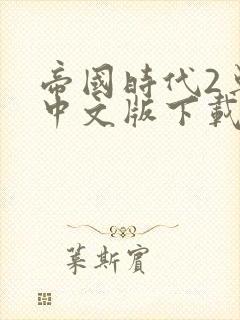 帝國時代2
中文版下載
葉斯賓